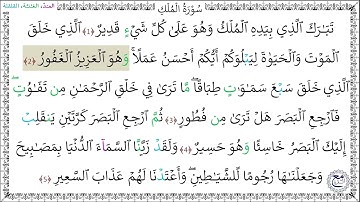 الصف: الثالثة، الثالثة
سُورَةُ المُلْكِ
تَبَٰرَكَ الَّذِي بِيَدِهِ المُلْكُ وَهُوَ عَلَىٰ كُلِّ شَيْءٍ قَدِيرٌ ﴿1﴾ الَّذِي خَلَقَ
المَوْتَ وَالحَيَوٰةَ لِيَبْلُوَكُمْ أَيُّكُمْ أَحْسَنُ عَمَلًا ۚ وَهُوَ العَزِيزُ الغَفُورُ ﴿2﴾
الَّذِي خَلَقَ سَبْعَ سَمَٰوَٰتٍ طِبَاقًا ۖ مَّا تَرَىٰ فِي خَلْقِ الرَّحْمَٰنِ مِن تَفَٰوُتٍ ۖ
فَارْجِعِ البَصَرَ هَلْ تَرَىٰ مِن فُطُورٍ ﴿3﴾ ثُمَّ ارْجِعِ البَصَرَ كَرَّتَيْنِ يَنقَلِبْ
إِلَيْكَ البَصَرُ خَاسِئًا وَهُوَ حَسِيرٌ ﴿4﴾ وَلَقَدْ زَيَّنَّا السَّمَآءَ الدُّنْيَا بِمَصَٰبِيحَ
وَجَعَلْنَٰهَا رُجُومًا لِّلشَّيَٰطِينِ ۖ وَأَعْتَدْنَا لَهُمْ عَذَابَ السَّعِيرِ ﴿5﴾